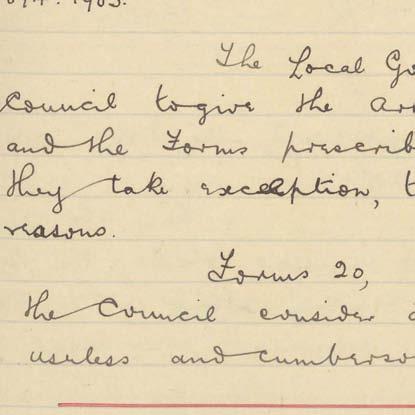 1903.
The Local Go
Council to give the Ar
and the Forms prescrib
they take exception, t
reasons.
Forms 20,
the Council consider a
useless and cumberso